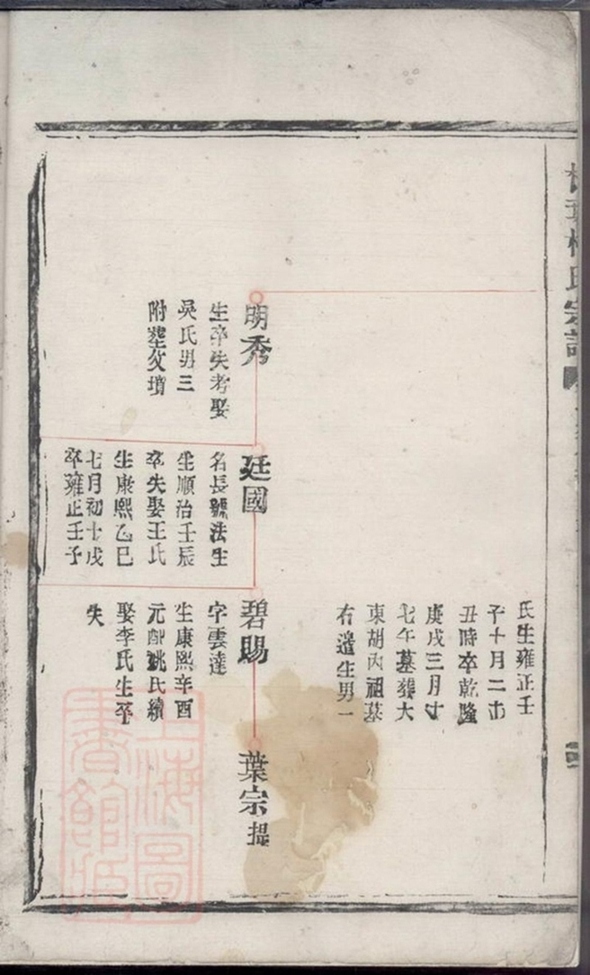 氏生雍正壬
子十月二十
丑時卒乾隆
庚戌三月廿
七午墓葬大
東胡內祖墓
右邊生男一
明秀
生卒失考娶
吳氏男三
附塟父墳
廷國
名長號法生
生順治壬辰
卒失娶王氏
生康熙乙巳
七月初十戌
卒雍正壬子
碧賜
字雲達
生康熙辛酉
元配姚氏續
娶李氏生卒
失
葉宗提
上海圖
書館藏